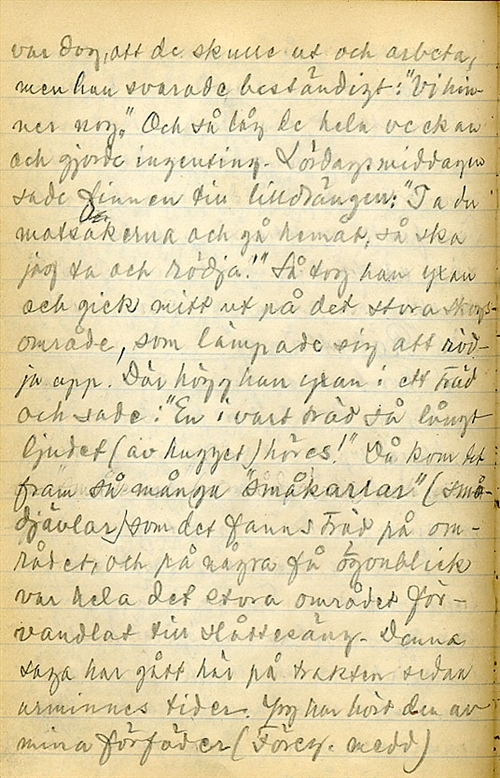 var dag, att de skulle ut och arbeta,
men han svarade beständigt: "Vi hin-
ner nog." Och så låg de hela veckan
och gjorde ingenting. Lördagsmiddagen
sade finnen till lilldrängen: "Ta du
matsäkerna och gå hemåt, så ska
jag ta och rödja!" Så tog han yxan
och gick mitt ut på det stora skogs-
område, som lämpade sig att röd-
ja upp. Där högg han yxan i ett träd
och sade: "En i vart träd så långt
ljudet (av hugget) höres!" Då kom det
fram så många "småkarlar" (små-
djävlar) som det fanns träd på om-
rådet, och på några få ögonblick
var hela det stora området för-
vandlat till slåttesäng. Denna
saga har gått här på trakten sedan
urminnes tider. Jag har hört den av
mina förfäder (Föreg. medd)